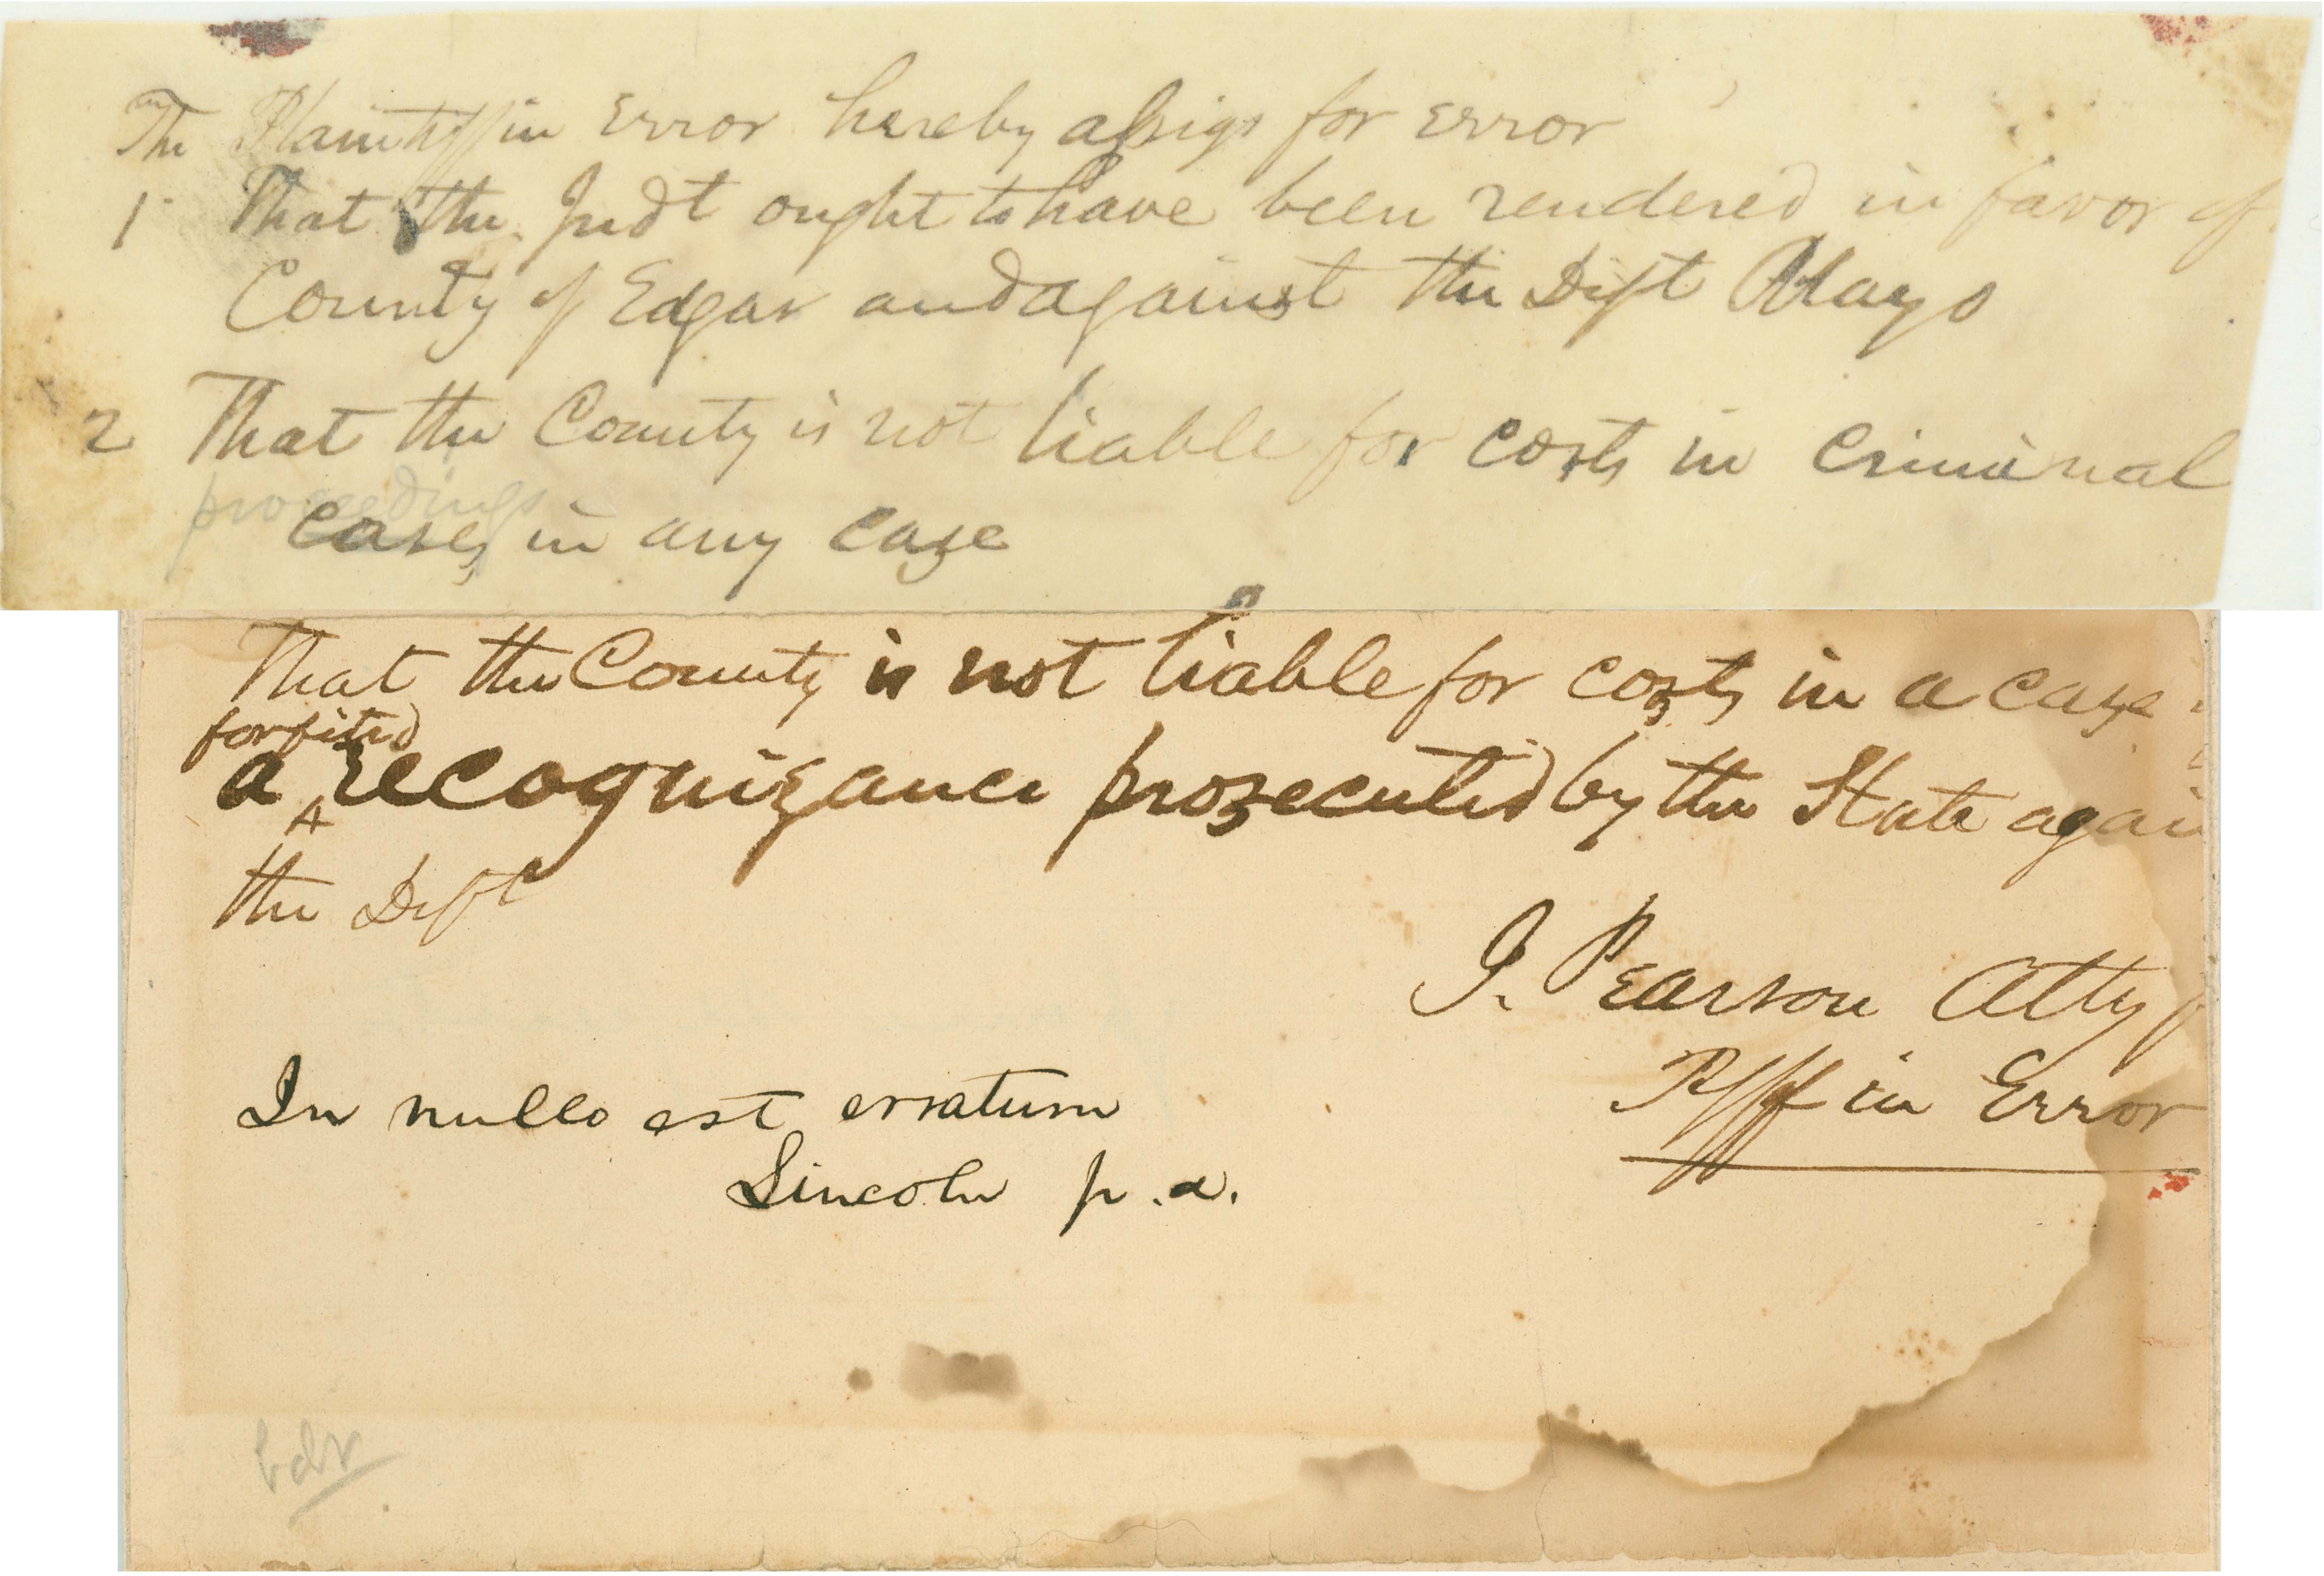 The Plaintiff in Error hereby assigs for Error
1 That the Judt ought to have been rendered in favor of
County of Edgar and against the Deft Mayo
2 That the County is not liable for costs in Criminal
proceedings
cases in any case
That the County is not liable for costs in a case
forfited
a ^ recognizance prosecuted by the State agai
the Deft
J. Pearson Atty
Plff in Error
In nullo est erratum
Lincoln p.d.